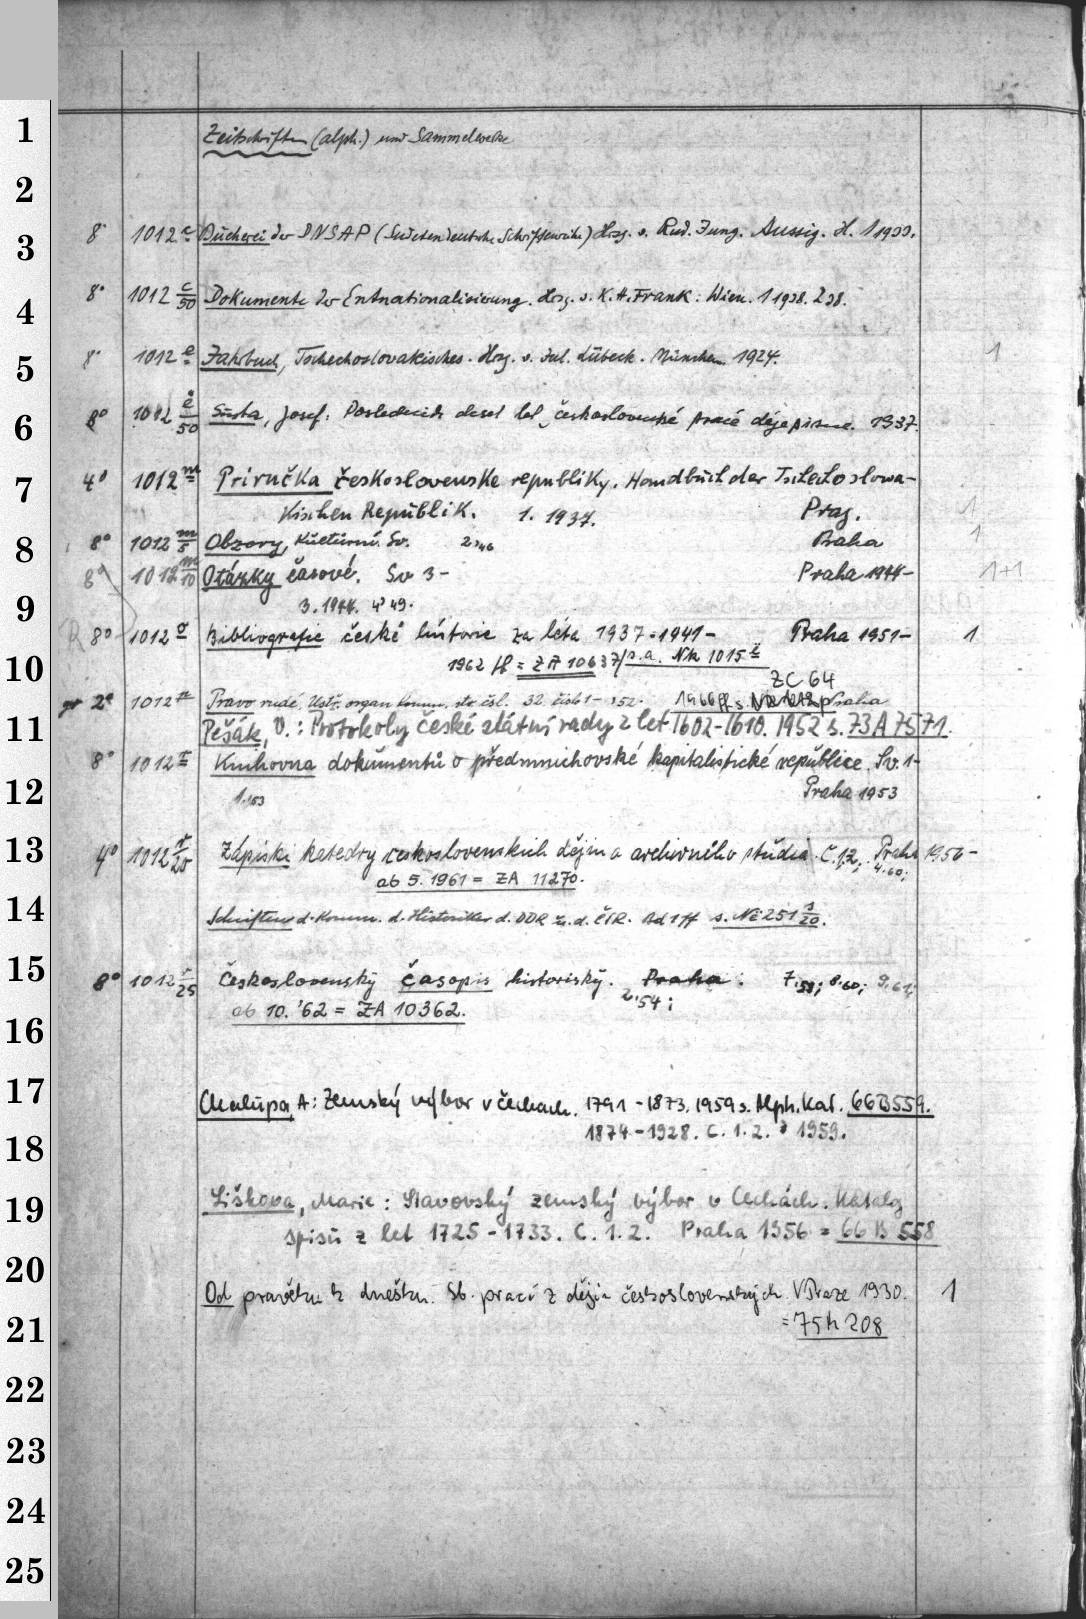 Zeitschriften (alph.) und Sammelwerke
1
2
3
8° 1012 c Bücherei der DNSAP (Sudetendeutsche Schriftenreihe) Hrsg. v. Rud. Jung. Aussig. H. 1 1933.
4
8° 1012 c/50 Dokumente der Entnationalisierung. Hrsg. v. K. H. Frank: Wien. 1 1938. 2 38.
5
8° 1012 e Jahrbuch, Tschechoslovakisches. Hrsg. v. Jul. Lübeck. München 1924. 1
6
8° 1012 e/50 Šusta, Josef: Posledních deset let československé práce dějepisné. 1937.
7
4° 1012 m Priručka Československe republiky. Handbuch der Tschechoslowa-
kischen Republik. 1. 1937. Prag. 1
8
8° 1012 m/5 Obzory, Kulturní. Sv. 2 46 Praha 1
8° 1012 m/10 Otázky časové. Sv 3- Praha 1944- 1+1
9
3. 1944. 4 49.
R 8° 1012 o Bibliografie české historie za léta 1937-1941- Praha 1951- 1
10
1962 ff = ZA 10637/s.a. Nk 1015 č
ZC 64
gr 2° 1012 Pravo rudé, Ústř. organ komm. str. čsl. 32, čislo 1- 1952. 1966 ff s. Praha
11
Pešák, V.: Protokoly české státní rady z let 1602-1610. 1952 s. 73 A 7571.
8° 1012 r Knihovna dokumentů o předmnichovské kapitalistické republice. Sv. 1-
12
1. 53 Praha 1953
13
4° 1012 r/20 Zápiski katedry československich dějin a archivního studia. Č. 1, 2, 4. 60; Praha 1956-
ab 5. 1961 = ZA 11270.
14
Schriften d. Komm. d. Historiker d. DDR u. d. ČSR. Bd 1 ff s. Ne 251 s/20.
15
8° 1012 r/25 Československý časopis historiský. Praha: 2. 54; 7. 59; 8. 60; 9. 61;
16
ab 10. '62 = ZA 10362.
17
Chalupa, A: Zemský výbor v Čechach. 1791-1873. 1959 s. Alph. Kat. 66 B 559.
18
1874-1928. C. 1. 2. 1959.
19
Lišková, Marie: Stavovský zemský výbor v Čechách. Katalog
spisů z let 1725-1733. C. 1. 2. Praha 1956 = 66 B 558
20
Od pravěku k dnešku. Sb. prací z dějin československých. V Praze 1930. 1
21
= 75 A 208
22
23
24
25